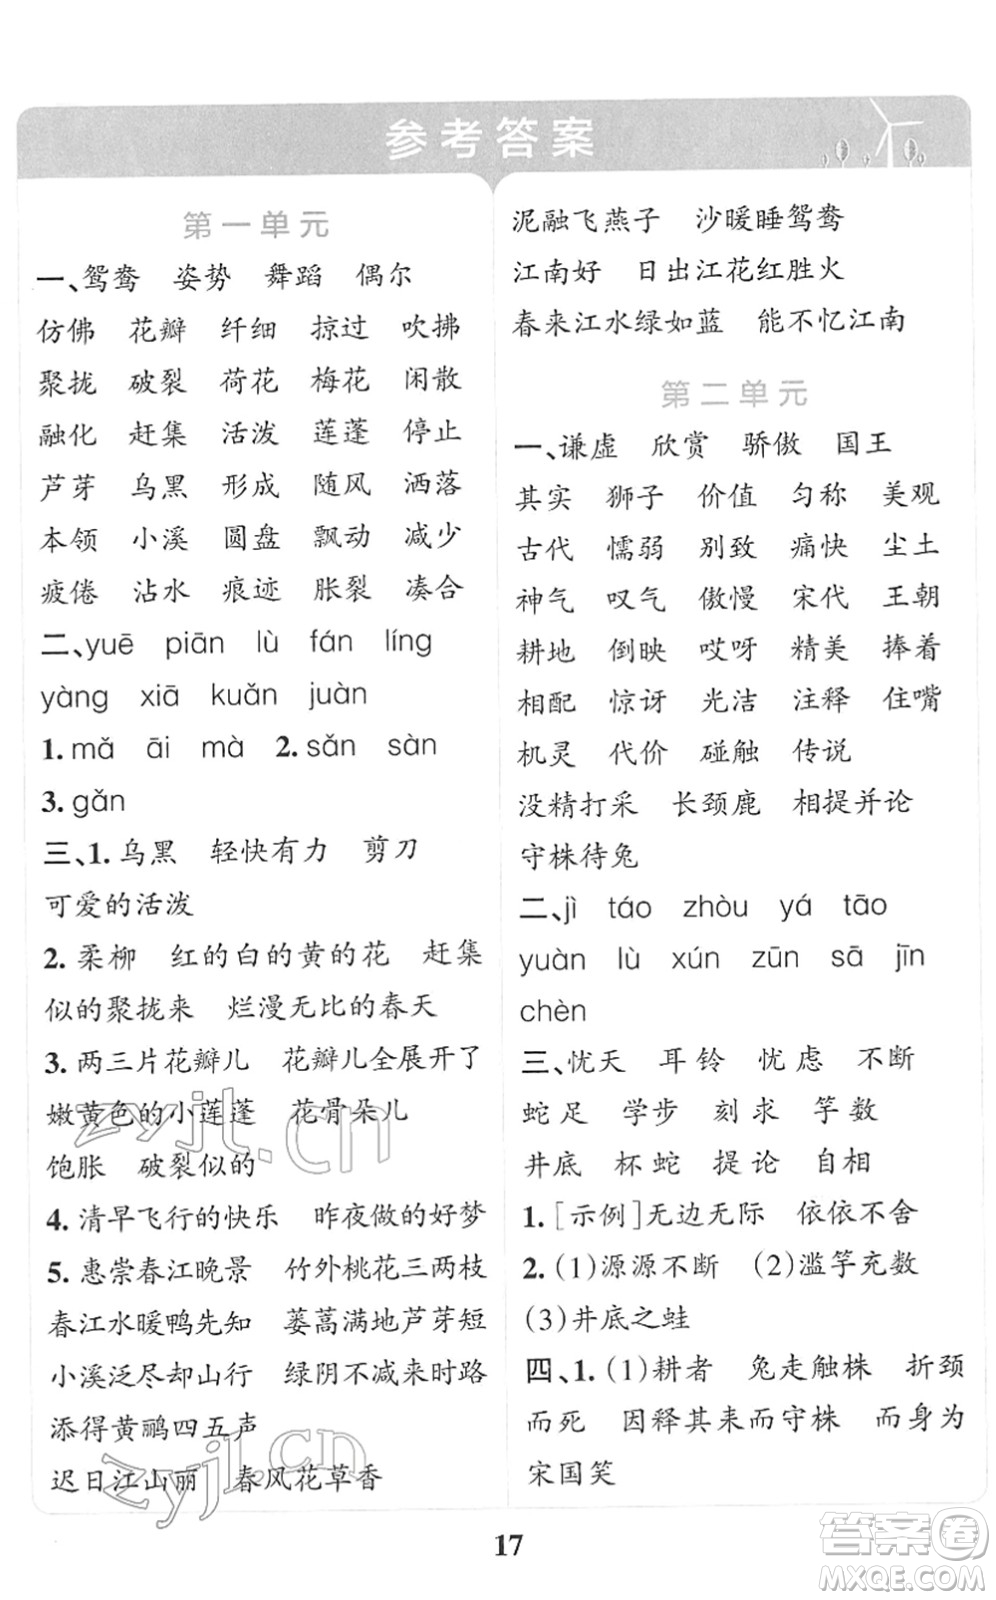 参考答案
第一单元
一、鸳鸯 姿势 舞蹈 偶尔
仿佛 花瓣 纤细 掠过 吹拂
聚拢 破裂 荷花 梅花 闲散
融化 赶集 活泼 莲蓬 停止
芦芽 乌黑 形成 随风 洒落
本领 小溪 圆盘 飘动 减少
疲倦 沾水 痕迹 胀裂 凑合
二、yuē piān lù fán líng
yàng xiā kuǎn juàn
1. mǎ āi mà 2. sǎn sàn
3. gǎn
三、1. 乌黑 轻快有力 剪刀
可爱的活泼
2. 柔柳 红的白的黄的花 赶集
似的聚拢来 烂漫无比的春天
3. 两三片花瓣儿 花瓣儿全展开了
嫩黄色的小莲蓬 花骨朵儿
饱胀 破裂似的
4. 清早飞行的快乐 昨夜做的好梦
5. 惠崇春江晚景 竹外桃花三两枝
春江水暖鸭先知 蒌蒿满地芦芽短
小溪泛尽却山行 绿阴不减来时路
添得黄鹂四五声
迟日江山丽 春风花草香
泥融飞燕子 沙暖睡鸳鸯
江南好 日出江花红胜火
春来江水绿如蓝 能不忆江南
第二单元
一、谦虚 欣赏 骄傲 国王
其实 狮子 价值 匀称 美观
古代 懦弱 别致 痛快 尘土
神气 叹气 傲慢 宋代 王朝
耕地 倒映 哎呀 精美 捧着
相配 惊讶 光洁 注释 住嘴
机灵 代价 碰触 传说
没精打采 长颈鹿 相提并论
守株待兔
二、jì táo zhòu yá tāo
yuàn lù xún zūn sā jīn
chèn
三、忧天 耳铃 忧虑 不断
蛇足 学步 刻求 竽数
井底 杯蛇 提论 自相
1. [示例]无边无际 依依不舍
2. (1)源源不断 (2)滥竽充数
(3)井底之蛙
四、1. (1)耕者 兔走触株 折颈
而死 因释其耒而守株 而身为
宋国笑
17
zyjl.cn
zyjl.cn
答案圈
MXQE.COM